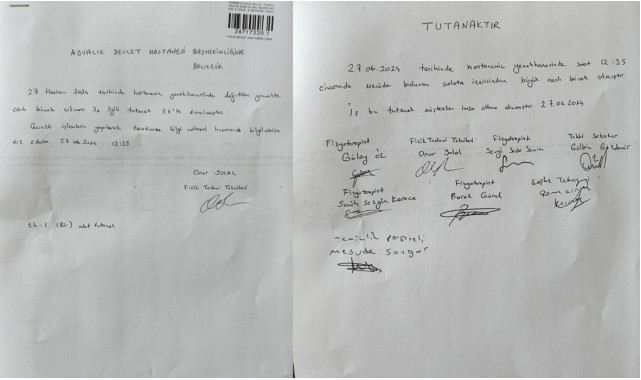 24717220
AYVALIK DEVLET HASTANESİ BAŞHEKİMLİĞİNE
BALIKESİR
27 Haziran 2024 tarihinde hastanemiz yemekhanesinde dağıtılan yemekte
canlı böcek çıkması ile ilgili tutanak EK'te sunulmuştur.
Gereğinin yapılarak tarafıma bilgi verilmesi hususunda bilgilerinize
arz ederim. 27.06.2024 12:35
Onur
Fizik Tedavi Teknikeri
Ek-1 (Bir) adet tutanak
TUTANAKTIR
27.06.2024 tarihinde hastanemiz yemekhanesinde saat 12:35
civarında menüde bulunan salata içerisinden büyük canlı böcek çıkmıştır.
İş bu tutanak müştereken imza altına alınmıştır. 27.06.2024
Fizyoterapist Fizik Tedavi Teknikeri Fizyoterapist Tıbbi Sekreter
Gülay Öz Onur Sevgi Gülsün
Fizyoterapist Fizyoterapist Sağlık Teknisyeni
Semih Sezgin Karaca Burak Günel
Temizlik Personeli
Mesude Songur